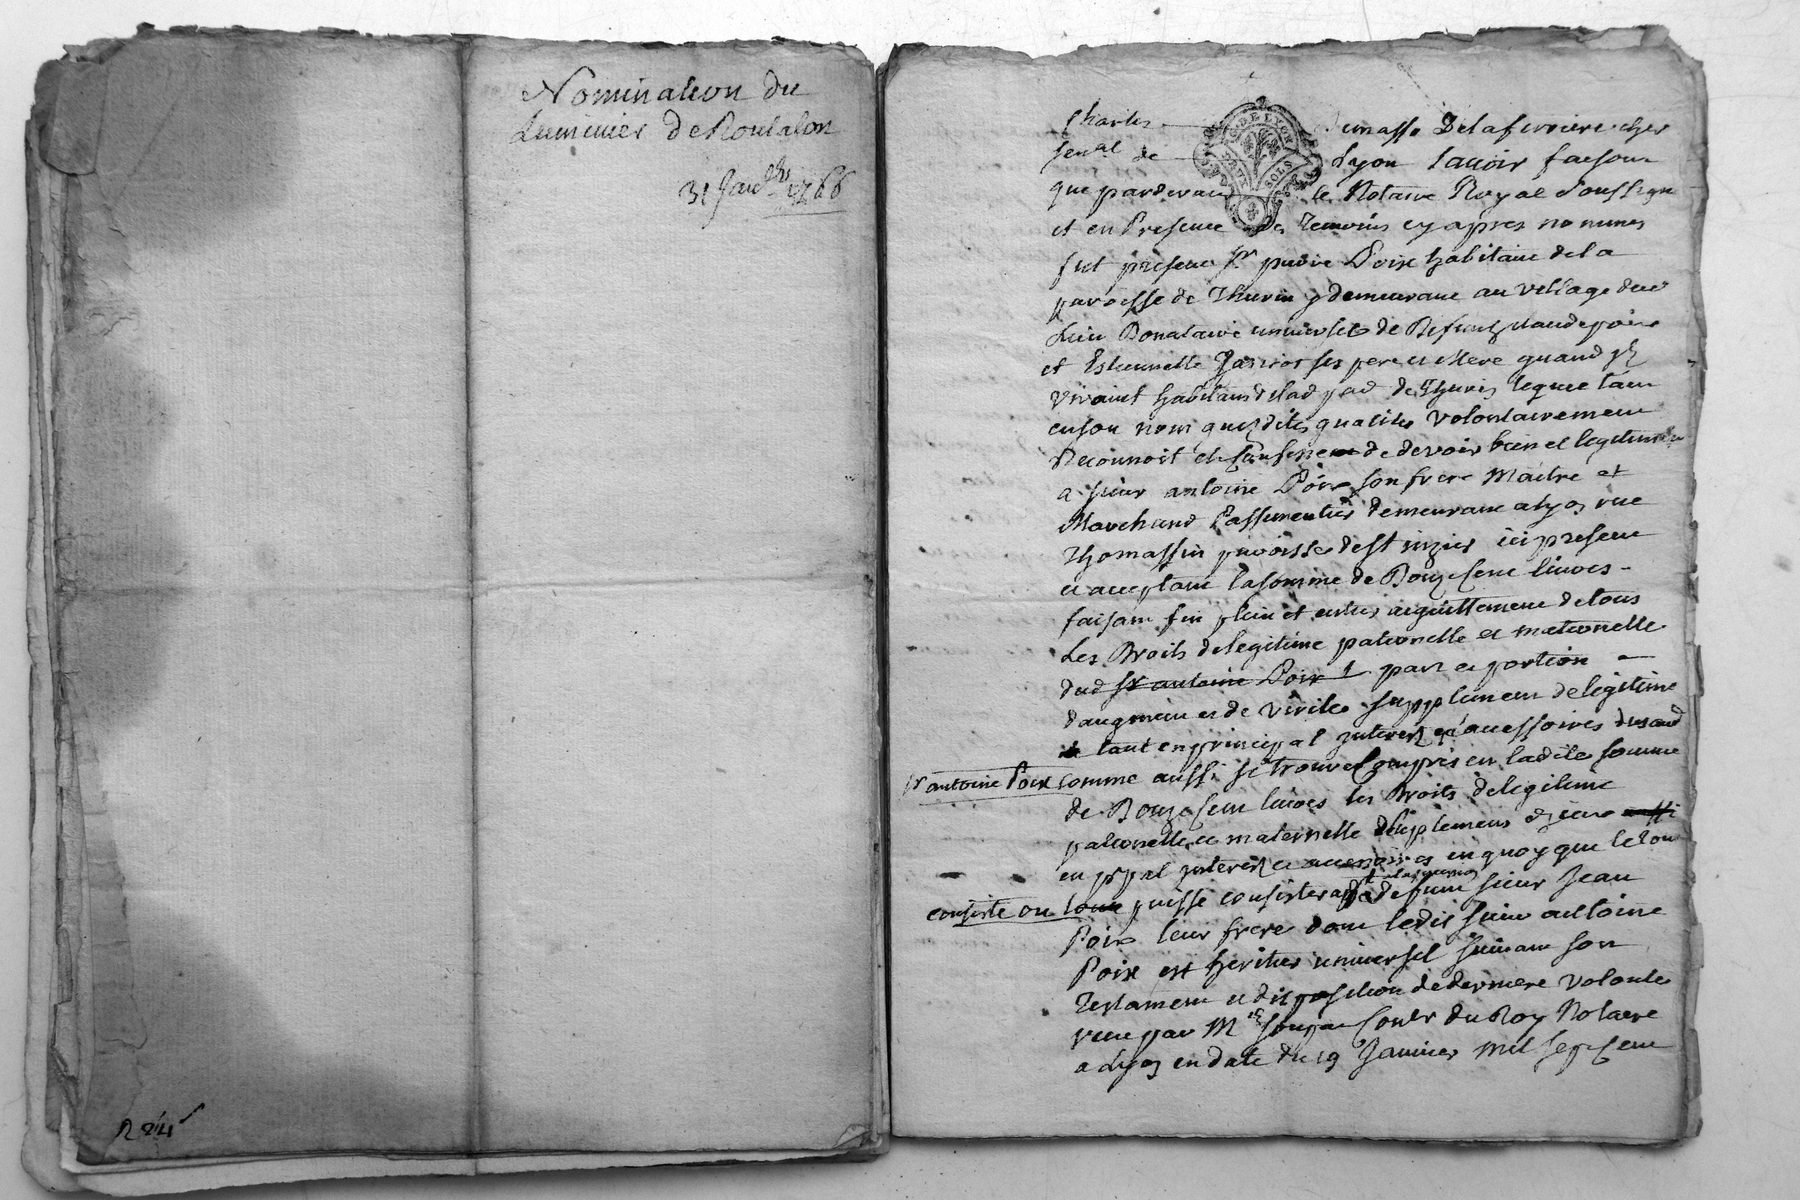 Nomination du
Luminier de Rontalon
31 Janv. 1766
R 24
Charles Demasso Delaferriere cher
G. DE LYON
SOLS
senal de Lyon scavoir faisons
que pardevant le Notaire Royal soussigne
et en Presence des Temoins cy apres nommes
fut present sr pierre Poix habitant de la
paroisse de Thurin y demeurant au village dud
Lieu Donataire universel de Defunts claude poix
et Estiennette ses pere et Mere quand ils
vivaient habitans de lad par de Thurin lequel tant
en son nom quesdites qualites volontairement
Reconnoit et Confesse de devoir bien et legitimemt
a sieur antoine Poix son frere Maitre et
Marchand Passementier demeurant a Lyon rue
Thomassin paroisse de st nizier ici present
et acceptant la somme de Douze cent livres
faisant fin plein et entier acquittement de tous
Les Droits de legitime paternelle et maternelle
dud sr antoine Poix part et portion
daugment et de virile supplement de legitime
tant en principal interets et accessoires dusaud
sr antoine Poix comme aussi se trouve Compris en ladite somme
de Douze Cent livres les Droits de legitime
paternelle et maternelle suplement dicelle
en ppal interets et accessoires en quoy que le tout
consiste ou puisse consister a defunt sieur Jean
Poix leur frere dont ledit sieur antoine
Poix est heritier universel suivant son
Testament et disposition de derniere volonte
recu par Me Conler du Roy Notaire
a Lyon en date du 19 Janvier mil sept Cent